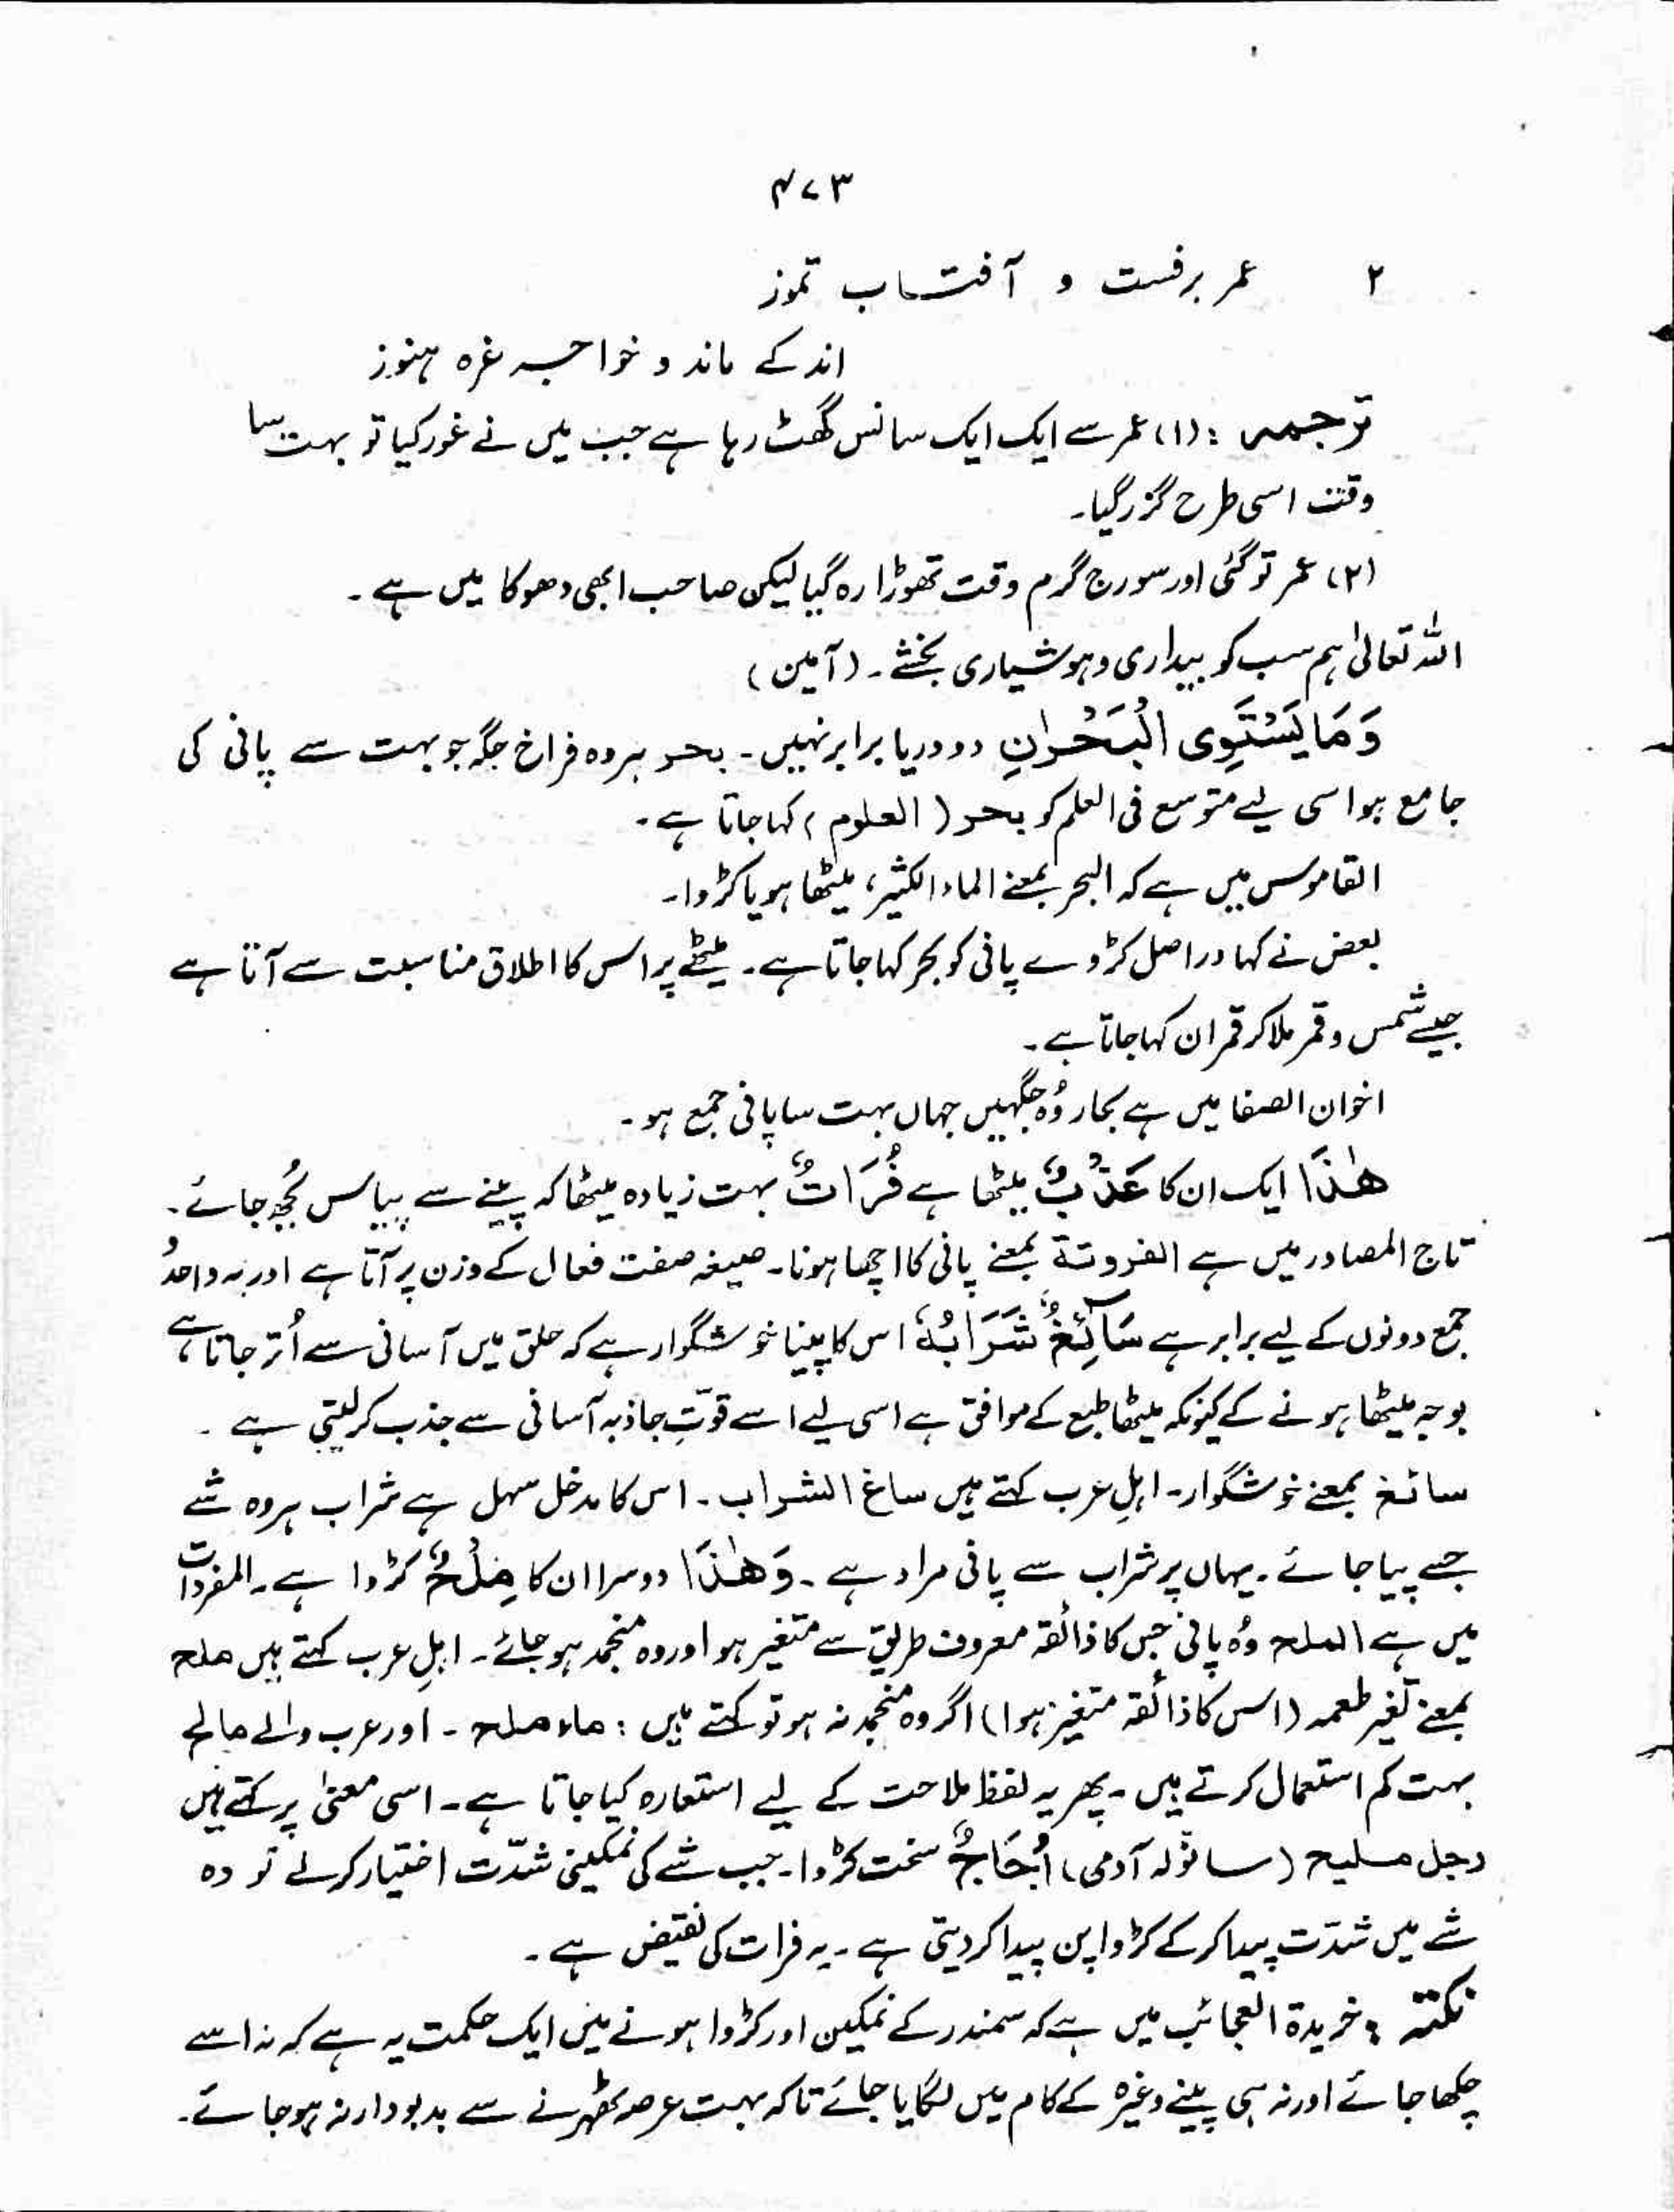 ۴۷۳
۲ عمر برفست و آفتاب تموز
اندکے ماند و خواجہ غرہ ہنوز
ترجمہ : (۱) عمر سے ایک ایک سانس گھٹ رہا ہے جب میں نے غور کیا تو بہت سا
وقت اسی طرح گزر گیا۔
(۲) عمر تو گئی اور سورج گرم وقت تھوڑا رہ گیا لیکن صاحب ابھی دھوکا میں ہے ۔
اللہ تعالیٰ ہم سب کو بیداری و ہوشیاری بخشے ۔ (آمین)
وَمَا یَسْتَوِی الْبَحْرٰنِ دو دریا برابر نہیں ۔ بحر ہر وہ فراخ جگہ جو بہت سے پانی کی
جامع ہو اسی لیے متوسع فی العلم کو بحر ( العلوم ) کہا جاتا ہے ۔
القاموس میں ہے کہ البحر بمعنے الماء الکثیر، میٹھا ہو یا کڑوا۔
بعض نے کہا دراصل کڑوے پانی کو بحر کہا جاتا ہے ۔ میٹھے پر اس کا اطلاق مناسبت سے آتا ہے
جیسے شمس و قمر ملا کر قمران کہا جاتا ہے ۔
اخوان الصفا میں ہے بحار وُہ جگہیں جہاں بہت سا پانی جمع ہو ۔
ھٰذَا ایک ان کا عَذْبٌ میٹھا ہے فُرَاتٌ بہت زیادہ میٹھا کہ پینے سے پیاس بُجھ جائے ۔
تاج المصادر میں ہے الفروتة بمعنے پانی کا اچھا ہونا۔ صیغہ صفت فعال کے وزن پر آتا ہے اور یہ واحد و
جمع دونوں کے لیے برابر ہے سَآئِغٌ شَرَابُہٗ اس کا پینا خوشگوار ہے کہ حلق میں آسانی سے اُتر جاتا ہے
بوجہ میٹھا ہونے کے کیونکہ میٹھا طبع کے موافق ہے اسی لیے اسے قوّتِ جاذبہ آسانی سے جذب کر لیتی ہے ۔
سائغ بمعنے خوشگوار۔ اہلِ عرب کہتے ہیں ساغ الشراب ۔ اس کا مدخل سہل ہے شراب ہر وہ شے
جسے پیا جائے ۔ یہاں پر شراب سے پانی مراد ہے ۔ وَھٰذَا دوسرا ان کا مِلْحٌ کڑوا ہے ۔ المفردات
میں ہے الملح وُہ پانی جس کا ذائقہ معروف طریق سے متغیر ہو اور وہ منجمد ہو جائے ۔ اہلِ عرب کہتے ہیں ملح
بمعنے تغیر طعمہ (اس کا ذائقہ متغیر ہوا) اگر وہ منجمد نہ ہو تو کہتے ہیں : ماء ملح ۔ اور عرب والے مالح
بہت کم استعمال کرتے ہیں ۔ پھر یہ لفظ ملاحت کے لیے استعارہ کیا جاتا ہے ۔ اسی معنیٰ پر کہتے ہیں
رجل ملیح ( سانولہ آدمی ) اُجَاجٌ سخت کڑوا ۔ جب شے کی نمکینی شدّت اختیار کر لے تو وہ
شے میں شدّت پیدا کر کے کڑواپن پیدا کر دیتی ہے ۔ یہ فرات کی نقیض ہے ۔
نکتہ : خریدة العجائب میں ہے کہ سمندر کے نمکین اور کڑوا ہونے میں ایک حکمت یہ ہے کہ نہ اسے
چکھا جائے اور نہ ہی پینے وغیرہ کے کام میں لگایا جائے تاکہ بہت عرصہ ٹھہرنے سے بدبودار نہ ہو جائے ۔